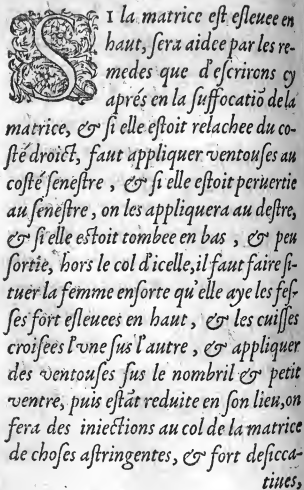 SI la matrice eſt eſleuee en
haut, ſera aidee par les re-
medes que d'eſcrirons cy
aprés en la ſuffocatiõ dela
matrice, & ſi elle eſtoit relachee du co-
ſté droict, faut appliquer ventouſes au
coſté ſeneſtre, & ſi elle eſtoit peruertie
au ſeneſtre, on les appliquera au deſtre,
& ſi elle eſtoit tombee en bas, & peu
ſortie, hors le col d'icelle, il faut faire ſi-
tuer la femme enſorte qu'elle aye les feſ-
ſes fort eſleuees en haut, & les cuiſſes
croiſees l'vne ſus l'autre, & appliquer
des ventouſes ſus le nombril & petit
ventre, puis eſtãt reduite en ſon lieu, on
fera des iniections au col de la matrice
de choſes aſtringentes, & fort deſicca-
tiues,